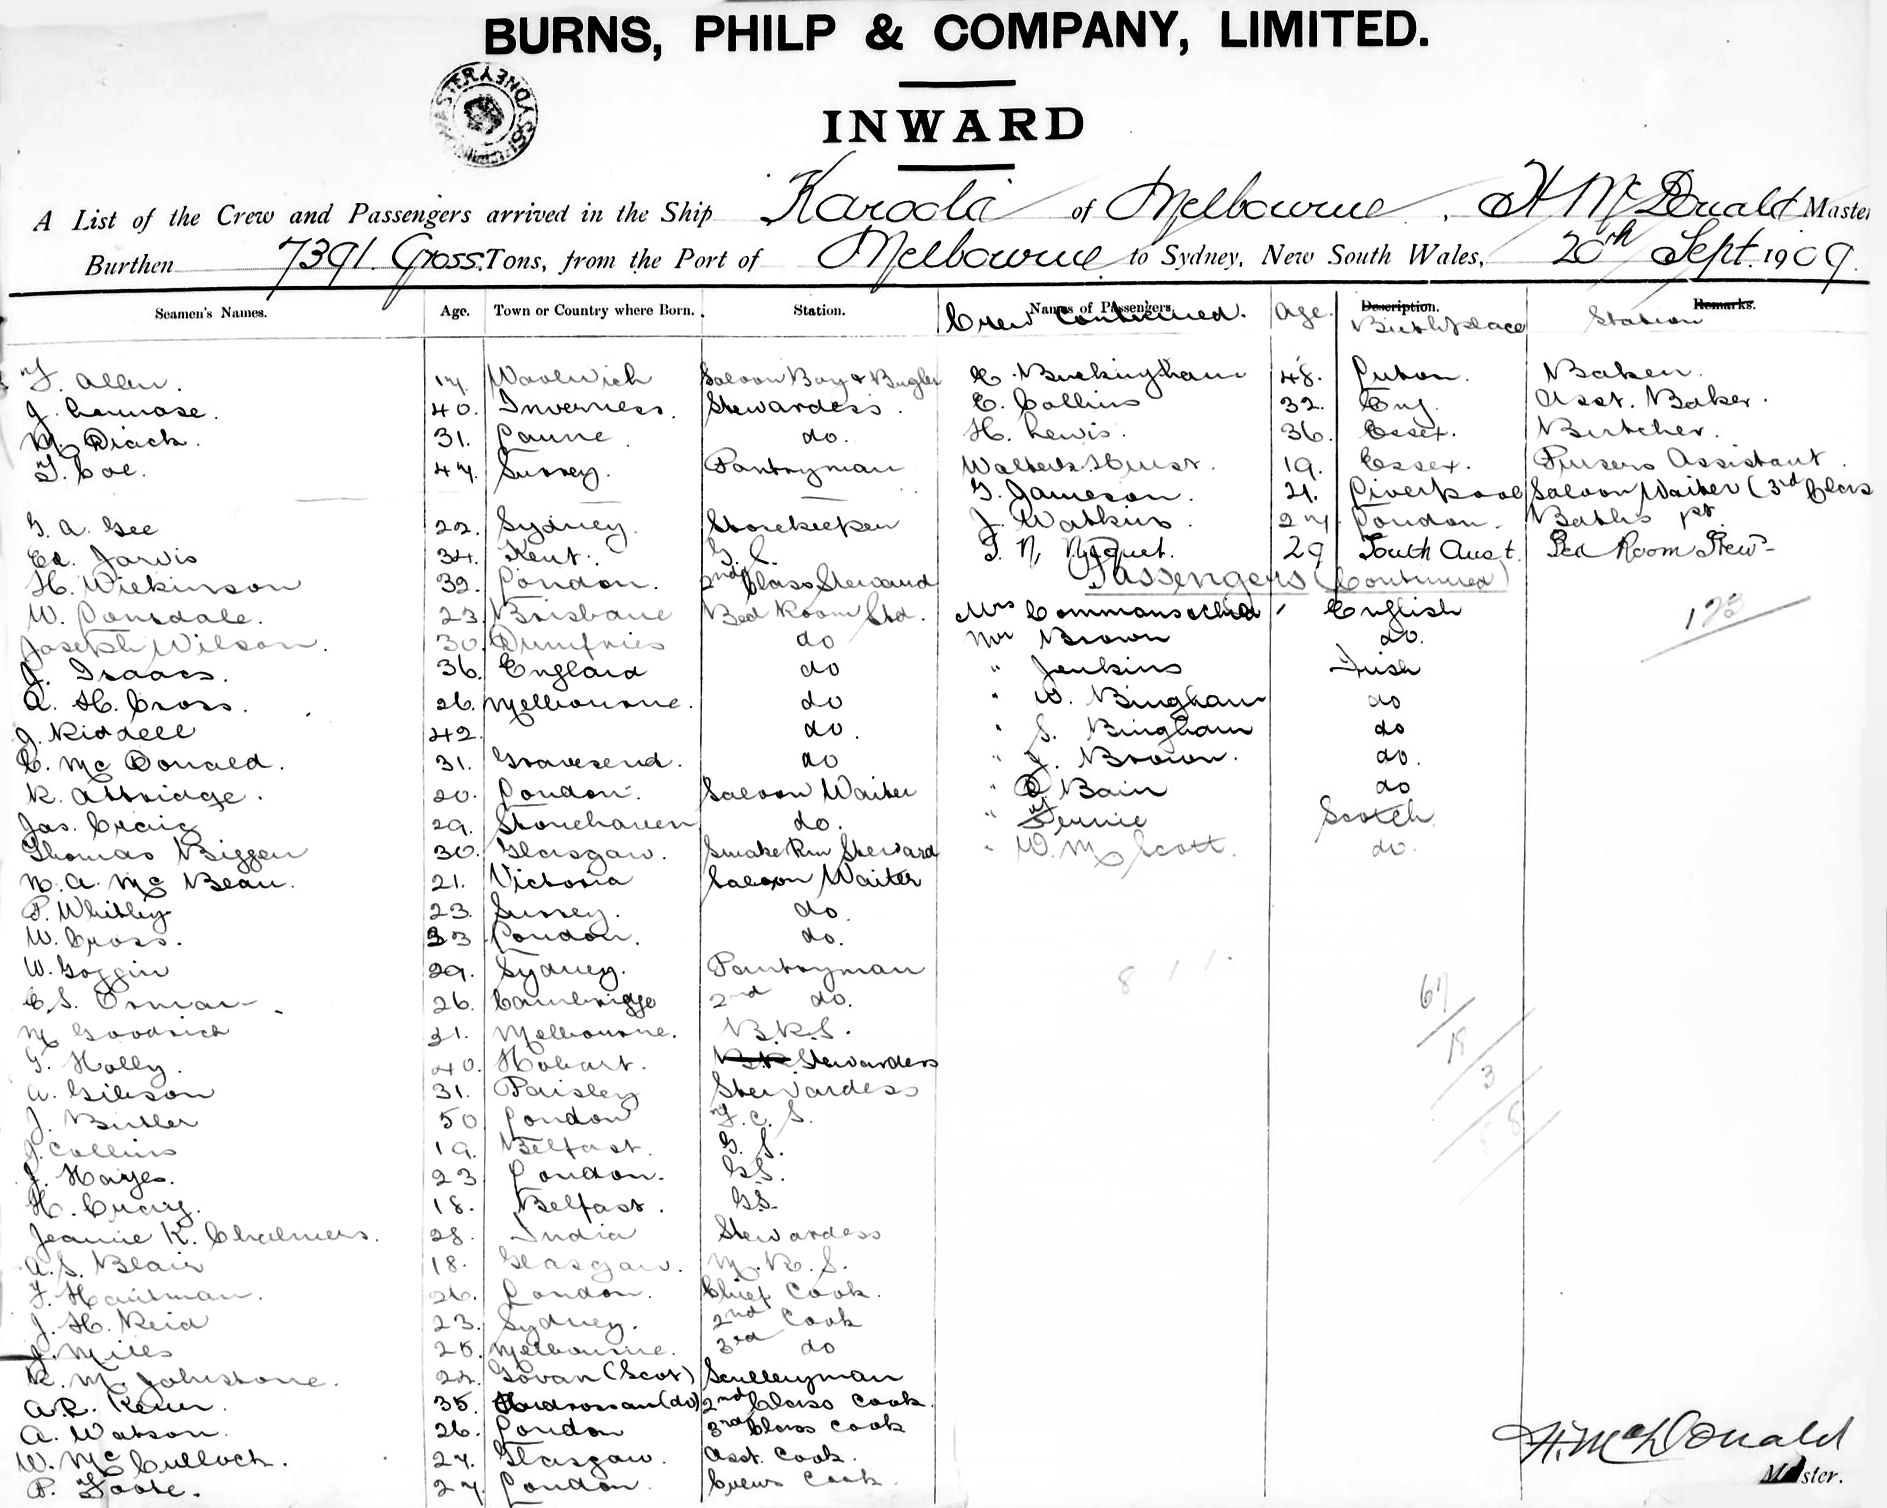 BURNS, PHILP & COMPANY, LIMITED.
INWARD
A List of the Crew and Passengers arrived in the Ship Karoola of Melbourne, H McDonald Master
Burthen 7391 Gross Tons, from the Port of Melbourne to Sydney, New South Wales, 20th Sept. 1909.
Seamen's Names. Age. Town or Country where Born. Station. Names of Passengers. Crew Continued. Age. Description. Birthplace Remarks. Station
F. Allen. 17. Woolwich Saloon Boy & Bugler Buckingham 48. Luton. Baker.
J. 40. Inverness. Stewardess. C. Collins 32. Eng. Asst. Baker.
M. Diack. 31. do. H. Lewis. 36. Essex. Butcher.
T. Coe. 47. Surrey. Pantryman Hurst. 19. Essex. Pursers Assistant.
G. Jameson. 21. Liverpool Saloon Waiter (3rd Class
G. A. Gee 22. Sydney. Storekeeper J. Watkins. 27. London. Baths pt.
Ed. Jarvis 34. Kent. G.S. 29 South Aust. Bed Room Stew-
H. Wilkinson 32. London. 2nd Class Steward Passengers (Continued)
W. Lonsdale. 23. Brisbane Bed Room Std. Mrs Commans & child English 123
Joseph Wilson. 30. Dumfries do Mr Brown do.
J. Isaacs. 36. England do " Jenkins Irish
A. H. Cross. 26. Melbourne. do " W. Bingham do
J. Riddell 42. do. " S. Bingham do
C. Mc Donald. 31. Gravesend. do " J. Brown. do.
R. Attridge. 20. London. Saloon Waiter " Bain do
Jas. Craig 29. Stonehaven do. " Fernie Scotch
Thomas Bigger 30. Glasgow. Smoke Rm Steward " W. Mc Scott. do.
Mc Bean. 21. Victoria Saloon Waiter
P. Whitby 23. Surrey. do.
W. Cross. 33 London. do.
W. Goggin 29. Sydney. Pantryman 8 1 1
C. S. Orman 26. Cambridge 2nd do. 67
M Goodrich 21. Melbourne. B.R.S. 18
G. Holly. 40. Hobart. Stewardess 3
A. Gibson 31. Paisley Stewardess
J. Butler 50 London F. C. S.
J. Collins 19. Belfast. G. S.
J. Hayes. 23 London. G.S.
H. Craig. 18. Belfast. G.S.
Jeannie K. Chalmers. 28. India Stewardess
A. S. Blair 18. Glasgow. M. R. S.
F. 26. London. Chief Cook.
J. H. Reid 23. Sydney. 2nd Cook
J. Miles 25. Melbourne. 3rd do
R. Mc Johnstone. 22. Govan (Scot) Sculleryman
A.R. 35. Ardrossan (do) 2nd Class Cook.
A. Watson. 26. London 3rd Class Cook
W. Mc Culloch. 27. Glasgow. Asst. Cook.
P. Foote. 27. London. Crews Cook.
H. McDonald
Master.